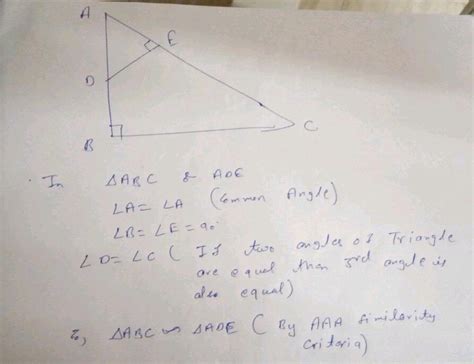 A
E
D
B
C
In ΔABC & ADE
∠A = ∠A (Common Angle)
∠B = ∠E = 90°
∠D = ∠C ( If two angles of Triangle
are equal than 3rd angle is
also equal)
ΔABC ∽ ΔADE ( By AAA Similarity
Criteria)